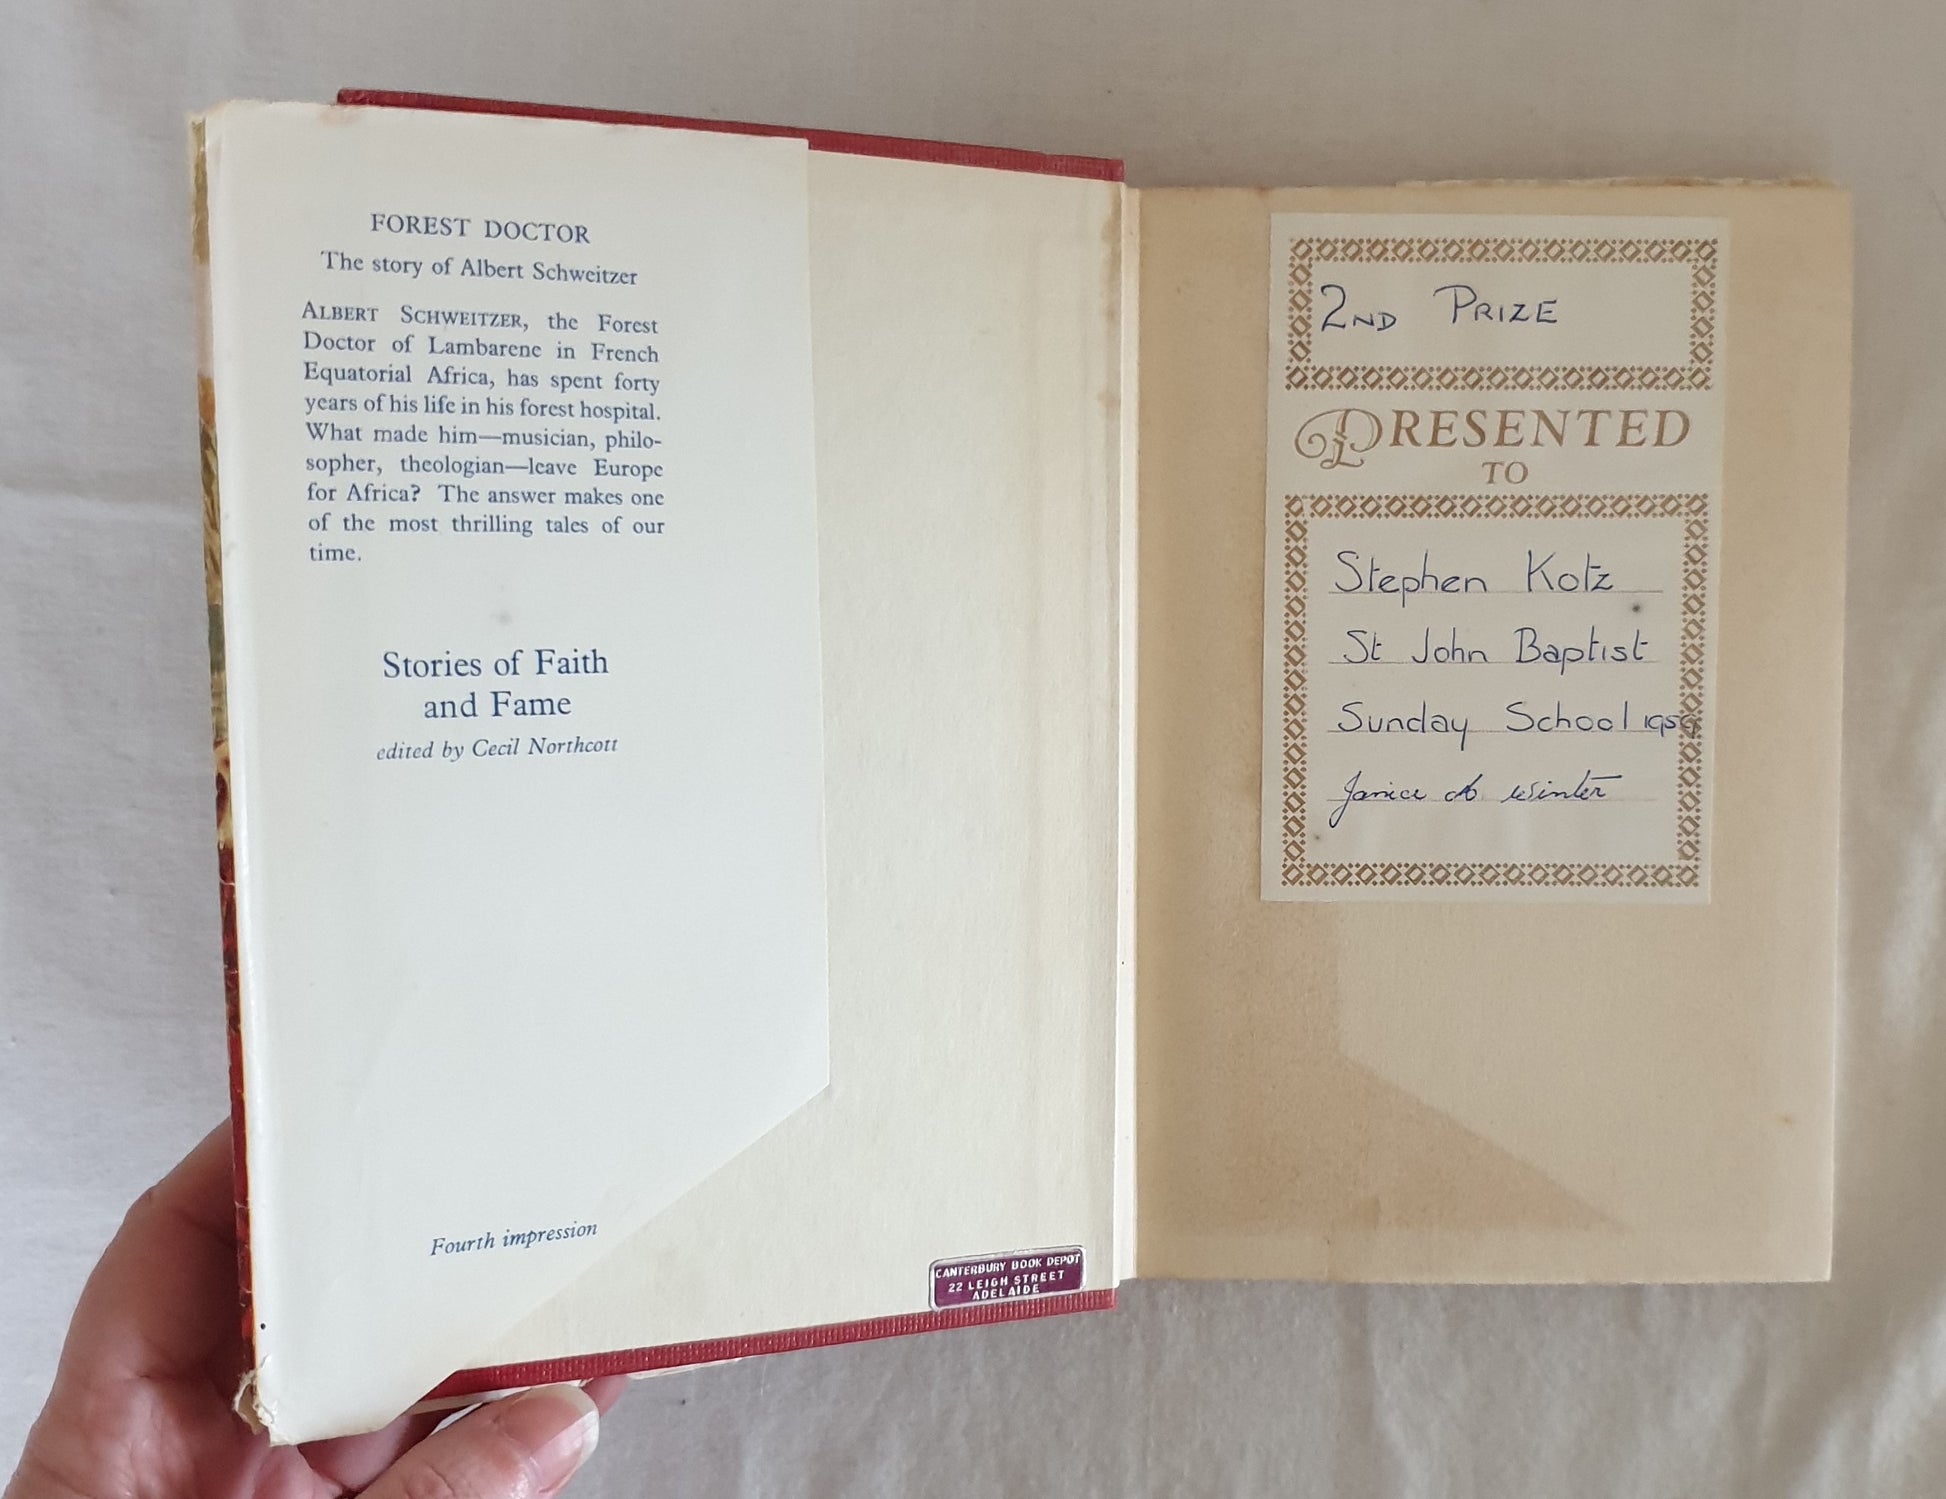 FOREST DOCTOR
The story of Albert Schweitzer
ALBERT SCHWEITZER, the Forest
Doctor of Lambarene in French
Equatorial Africa, has spent forty
years of his life in his forest hospital.
What made him—musician, philo-
sopher, theologian—leave Europe
for Africa? The answer makes one
of the most thrilling tales of our
time.
Stories of Faith
and Fame
edited by Cecil Northcott
Fourth impression
CANTERBURY BOOK DEPOT
22 LEIGH STREET
ADELAIDE
2ND PRIZE
PRESENTED
TO
Stephen Kotz
St John Baptist
Sunday School 1959
Janice Winter